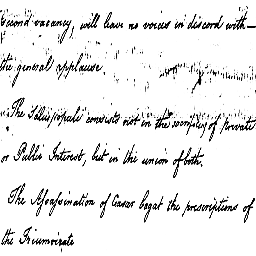 second vacancy, will leave no voices in discord with—
the general applause.
The Salus populi consists not in the complex of private
or Public Interest, but in the union of both.
The Assassination of Caesar begat the proscriptions of
the Triumvirate